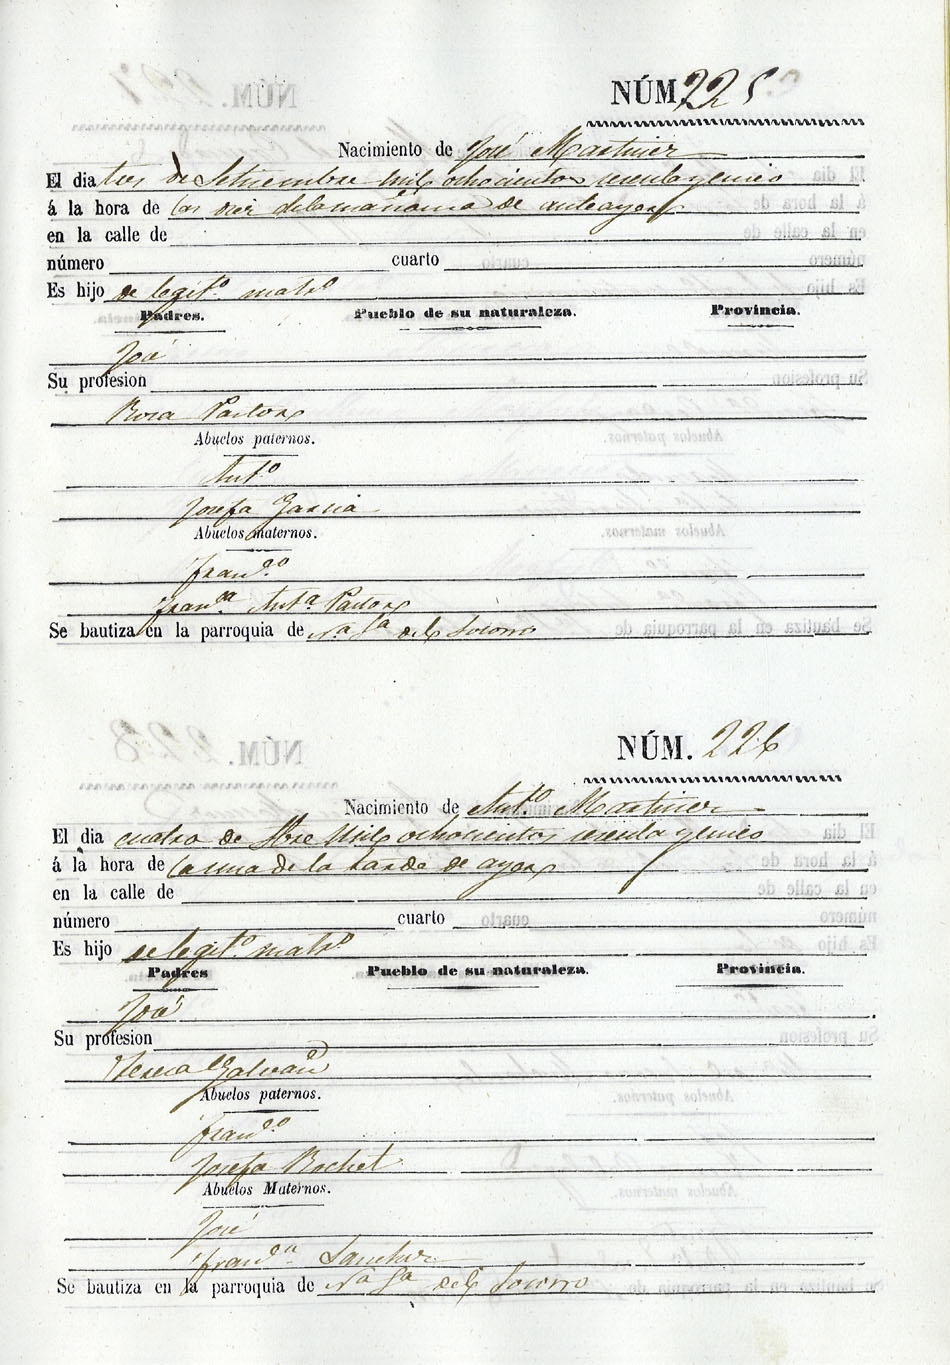 NÚM. 225
Nacimiento de José Martinez
El dia tres de Setiembre mil ochocientos sesenta y cinco
á la hora de las diez de la mañana de anteayer
en la calle de
número cuarto
Es hijo de legit.º matr.º
Padres. Pueblo de su naturaleza. Provincia.
José
Su profesion
Rosa Pastor
Abuelos paternos.
Ant.º
Josefa Garcia
Abuelos maternos.
Fran.co
Fran.ca Ant.a Pastor
Se bautiza en la parroquia de N.a S.a del Socorro
NÚM. 226
Nacimiento de Ant.º Martinez
El dia cuatro de Sbre mil ochocientos sesenta y cinco
á la hora de la una de la tarde de ayer
en la calle de
número cuarto
Es hijo de legit.º matr.º
Padres Pueblo de su naturaleza. Provincia.
José
Su profesion
Teresa Galvañ
Abuelos paternos.
Fran.co
Josefa Rochel
Abuelos Maternos.
José
Fran.ca Sanchez
Se bautiza en la parroquia de N.a S.a del Socorro